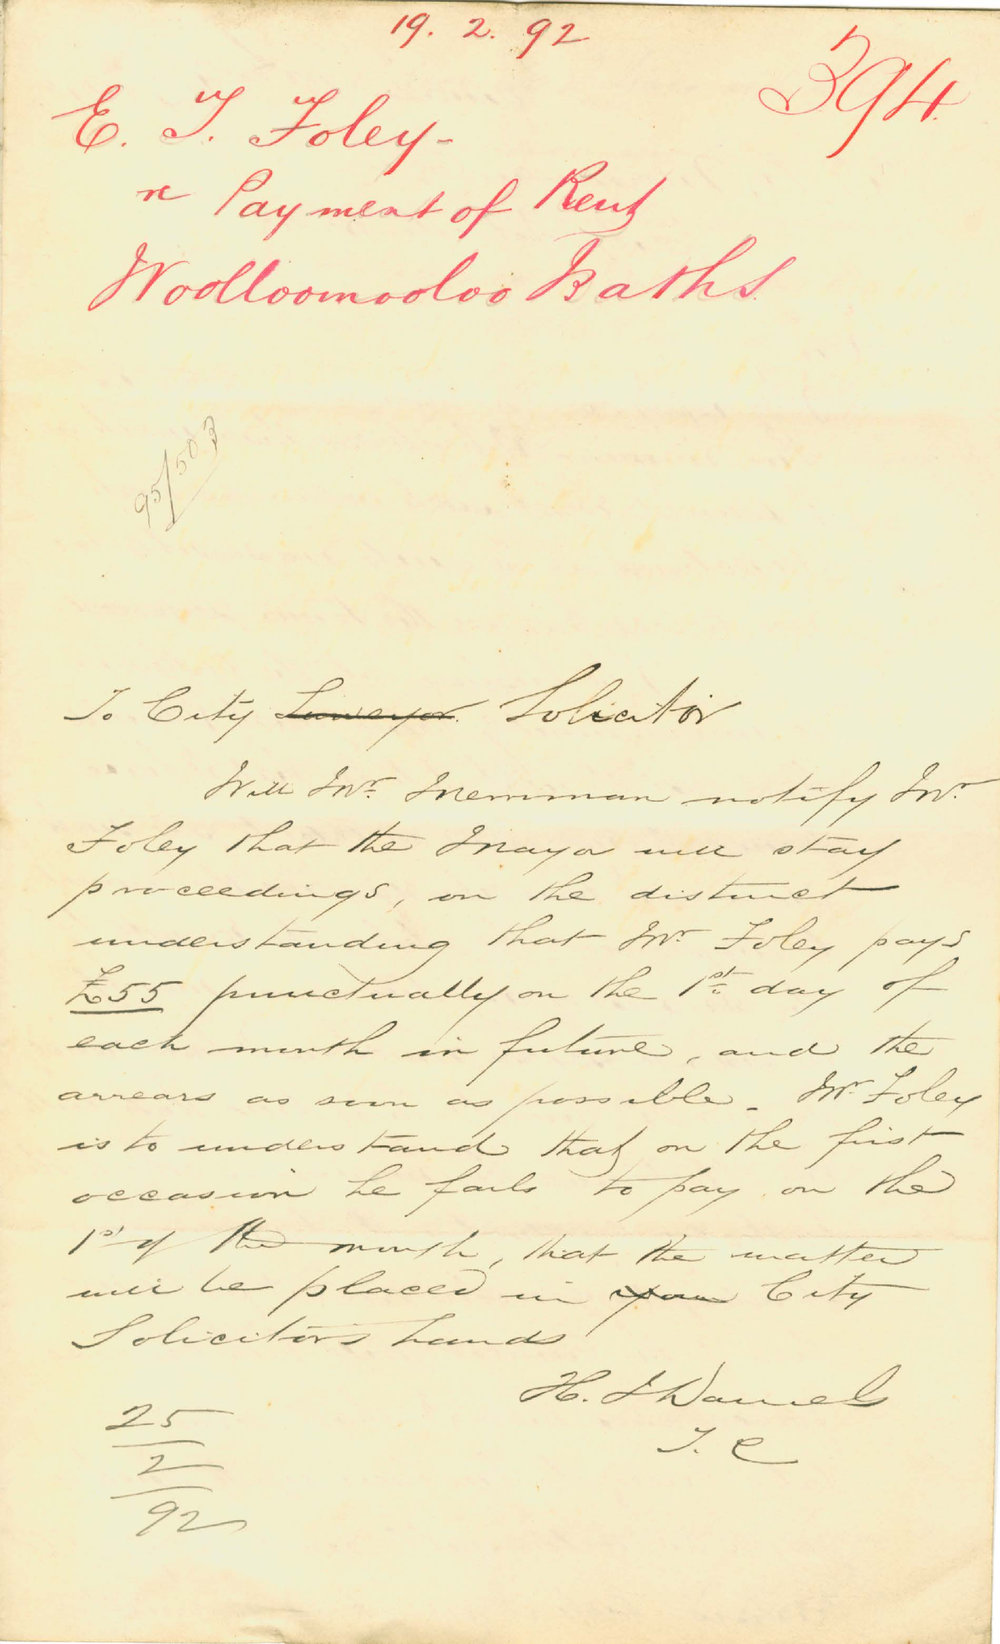 19. 2. 92
394
E. T. Foley -
re Payment of Rent
Woolloomooloo Baths
95/503
To City Surveyor. Solicitor
Will Mr. Merriman notify Mr.
Foley that the Mayor will stay
proceedings, on the distinct
understanding that Mr. Foley pays
£55 punctually on the 1st. day of
each month in future, and the
arrears as soon as possible. Mr. Foley
is to understand that on the first
occasion he fails to pay on the
1st of the month, that the matter
will be placed in your City
Solicitors hands
H. J Daniels
T. C
25
2
92